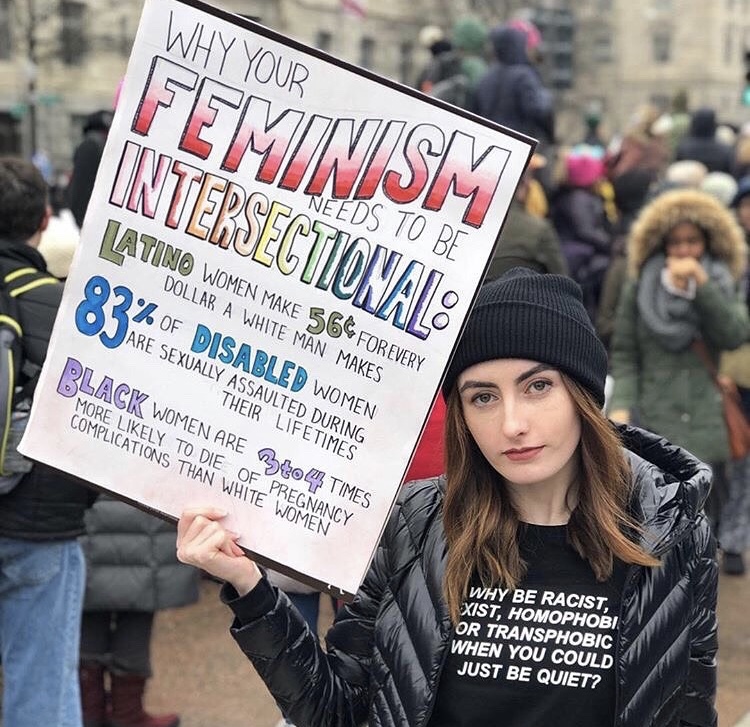 WHY YOUR
FEMINISM
NEEDS TO BE
INTERSECTIONAL:
LATINO WOMEN MAKE 56¢ FOR EVERY
DOLLAR A WHITE MAN MAKES
83% OF DISABLED WOMEN
ARE SEXUALLY ASSAULTED DURING
THEIR LIFETIMES
BLACK WOMEN ARE 3 to 4 TIMES
MORE LIKELY TO DIE OF PREGNANCY
COMPLICATIONS THAN WHITE WOMEN
WHY BE RACIST,
EXIST, HOMOPHOBI
OR TRANSPHOBIC
WHEN YOU COULD
JUST BE QUIET?